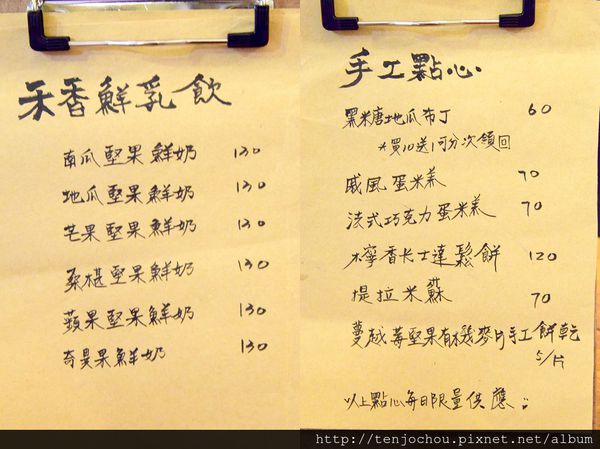 禾香鮮乳飲
南瓜堅果鮮奶 130
地瓜堅果鮮奶 130
芒果堅果鮮奶 130
桑椹堅果鮮奶 130
蘋果堅果鮮奶 130
奇異果鮮奶 130
手工點心
黑米唐地瓜布丁 60
*買10送1可分次領回
戚風蛋米羔 70
法式巧克力蛋米羔 70
檸香卡士達鬆餅 120
提拉米蘇 70
蔓越莓堅果有機麥片手工餅乾
5/片
以上點心每日限量供應
http://tenjochou.pixnet.net/album